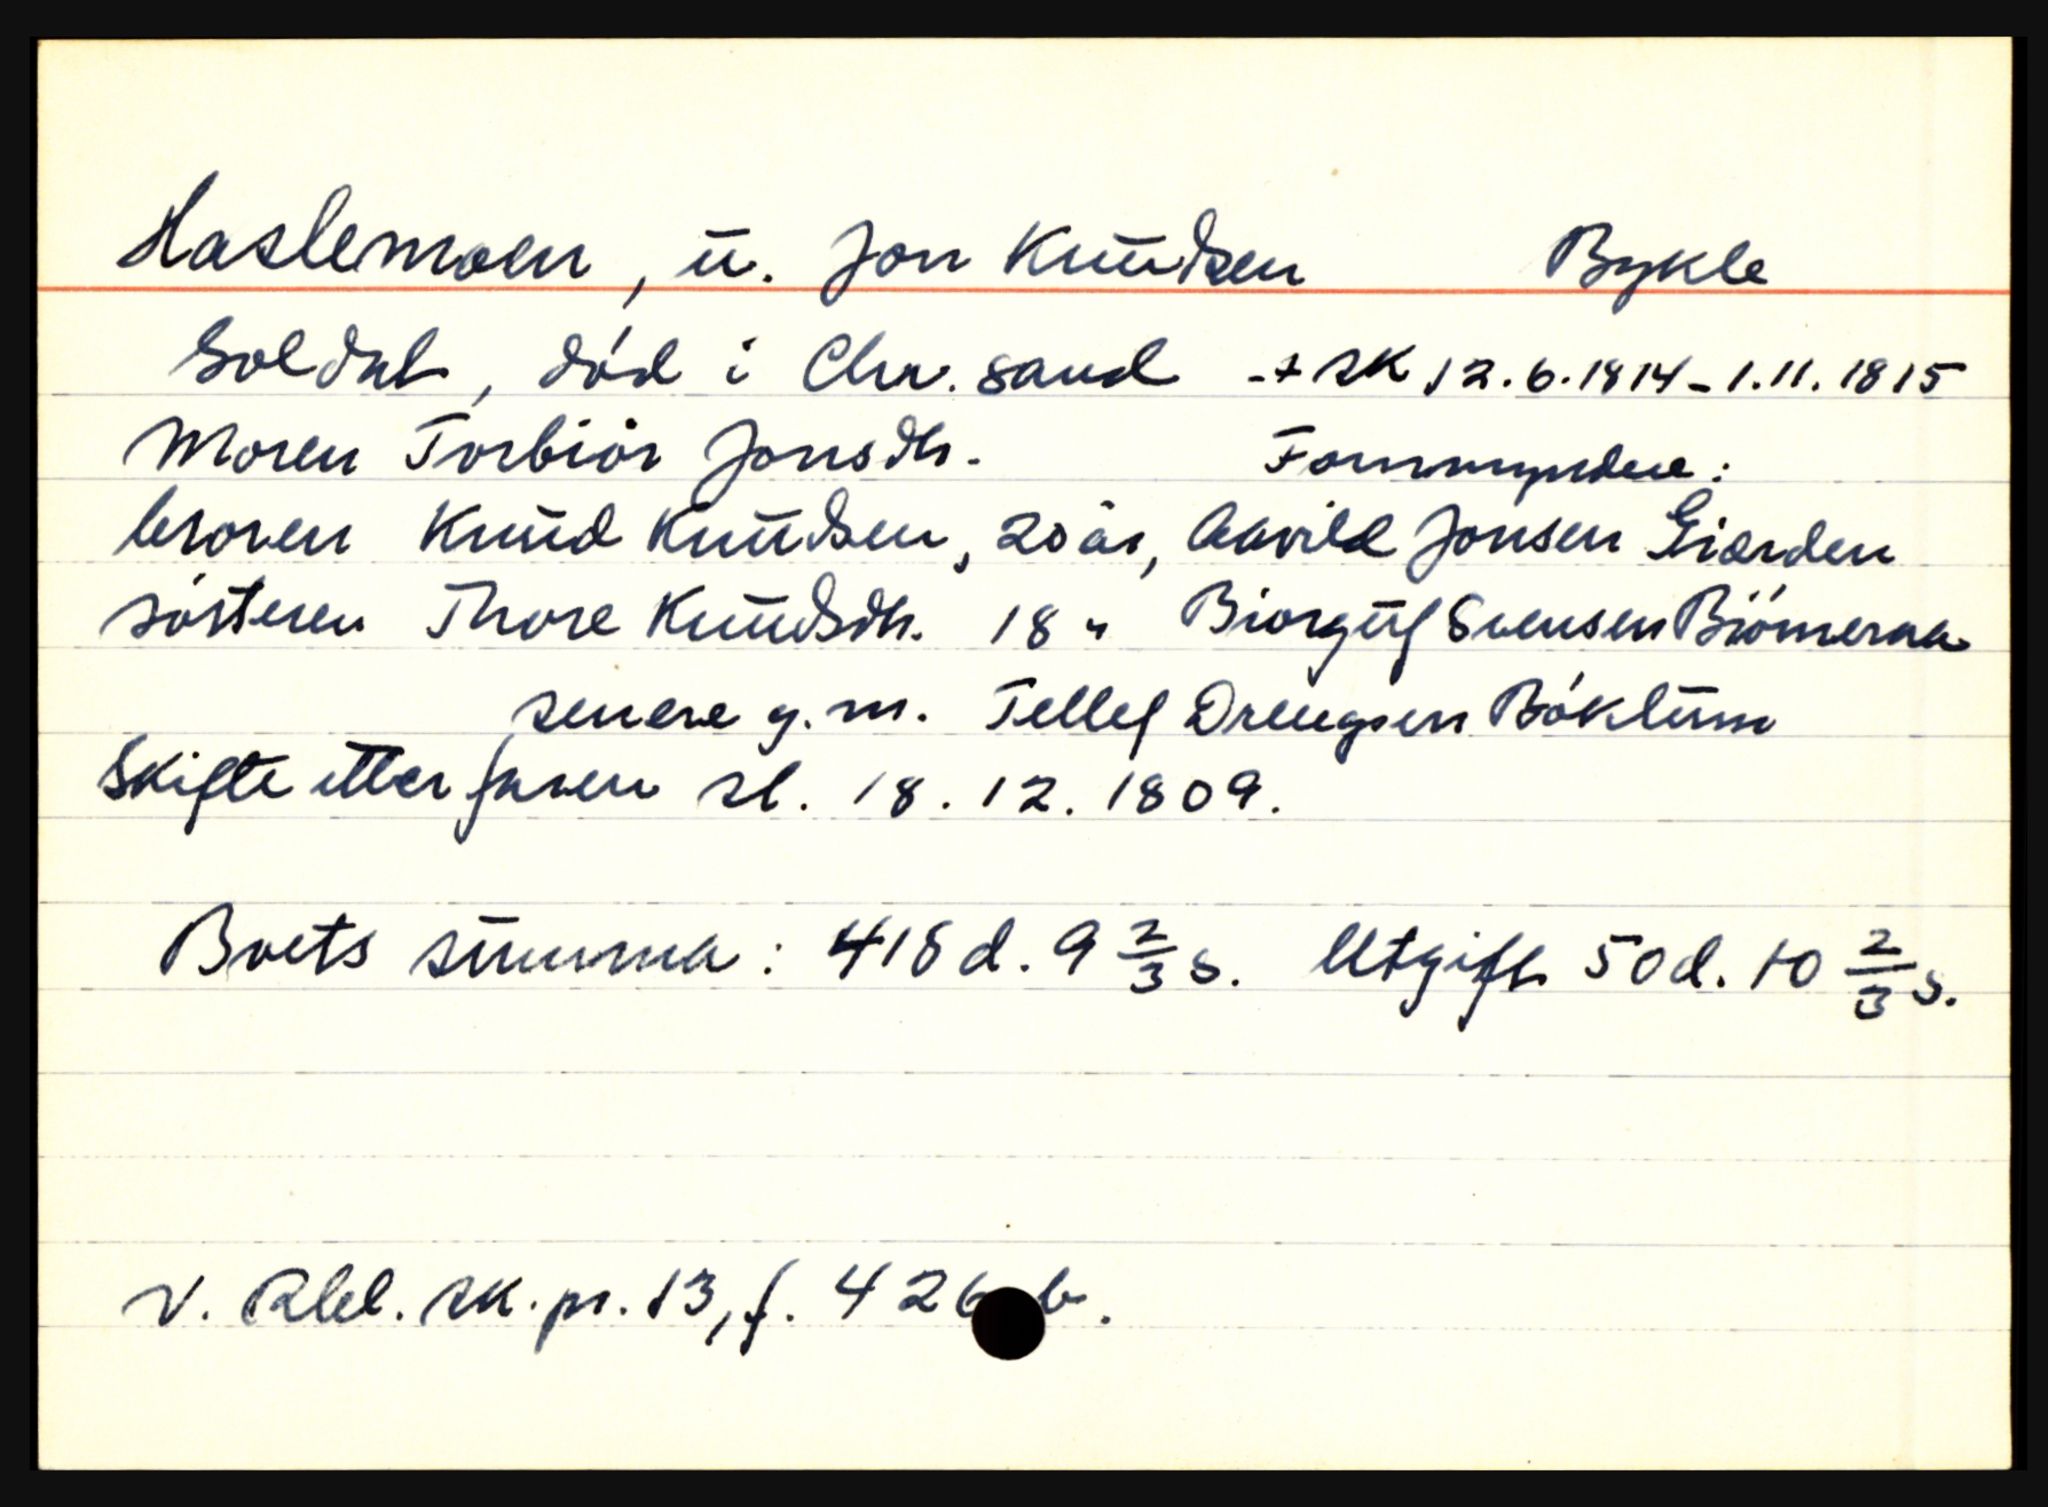 Haslemoen, u. Jon Knudsen Bykle
Soldat, död i Chr.sand - + sk 12.6.1814 - 1.11.1815
Moren Torbiör Jonsdtr. Formyndere:
broren Knud Knudsen, 20 år, Aavild Jonsen Giærden
sösteren Thore Knudsdtr. 18 " Biorguf Svensen Biörneraa
senere g.m. Tellef Drengsen Böklum
Skifte etter faren sl. 18.12.1809.
Boets summa: 418 d. 9 2/3 s. Utgift 50 d. 10 2/3 s.
V. Rbl. sk.pr. 13, f. 426 b.